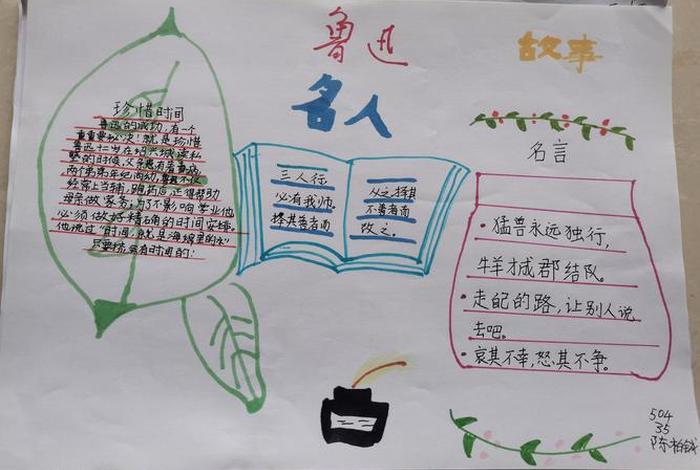 鲁迅
名人
故事
珍惜时间
鲁迅的成功,有一个
重要秘决!就是珍惜
鲁迅十二岁在绍兴城读私
塾的时候,父亲患有着重病
两个弟弟年纪尚幼,
经常上当铺,跑药店,还得帮助
母亲做家务,为了不影响学业他
必须做好精确的时间安排。
他说过"时间,就是海绵里的水"
只要挤,总有时间的!
三人行
必有我师。
择其善者而
从之,择其
不善者而
改之。
名言
·猛兽永远独行,
牛羊才成郡结队。
·走自己的路,让别人说
去吧。
·哀其不幸,怒其不争。
504
35
陈柏